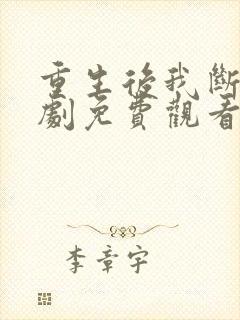 重生後我斷
劇免費觀看
李章宇